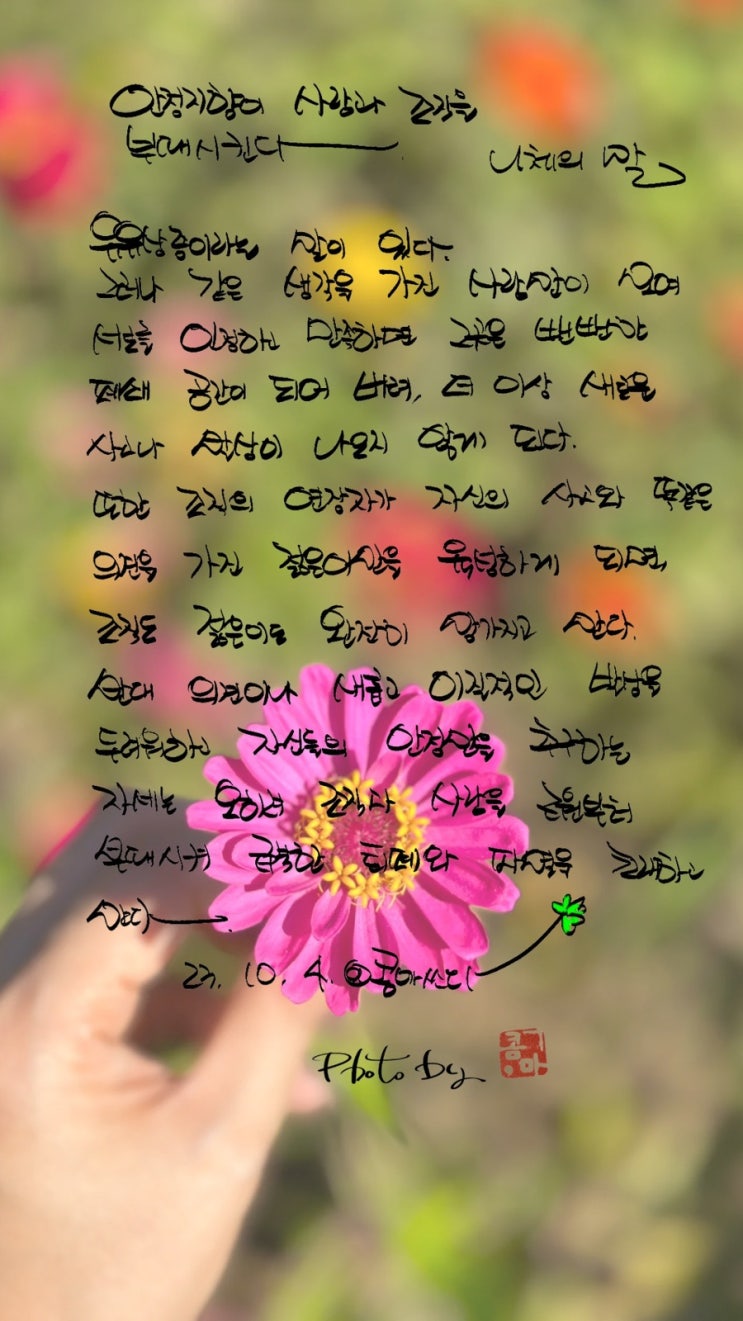 안정지향이 사람과 조직을
부패시킨다
니체의 말
유유상종이라는 말이 있다.
그러나 같은 생각을 가진 사람만이 모여
서로를 인정하고 만족하면 그곳은 뻔뻔한
폐쇄 공간이 되어 버려, 더 이상 새로운
사고나 발상이 나오지 않게 된다.
또한 조직의 연장자가 자신의 사고와 똑같은
의견을 가진 젊은이만을 육성하게 되면,
조직도 젊은이도 완전히 망가지고 만다.
반대 의견이나 새롭고 이질적인 발상을
두려워하고 자신들의 안정만을 추구하는
자세는 오히려 조직과 사람을 근원부터
부패시켜 급격한 퇴폐와 파멸을 초래하고
만다
23. 10. 4. 콩아쓰다
Photo by